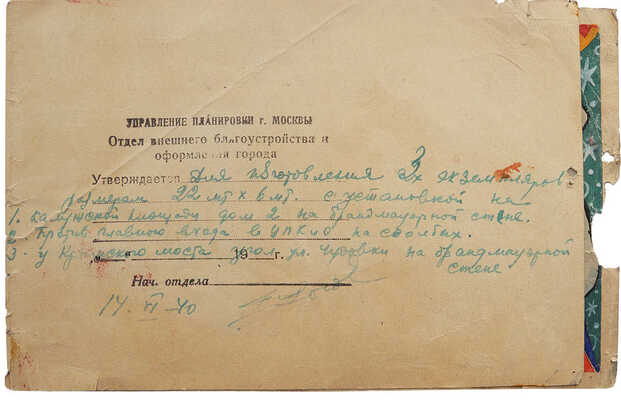 УПРАВЛЕНИЕ ПЛАНИРОВКИ г. МОСКВЫ
Отдел внешнего благоустройства и
оформления города
Утверждается Для изготовления 3х экземпляров
размером 22 мт х 6 мт. с установкой на
1. Калужской площади дом 2 на брандмауерной стене.
2. Против главного входа в ЦПКиО на столбах.
3 - у Крымского моста угол ул. Чудовки на брандмауерной
стене
19 г.
Нач. отдела
14 VI 40